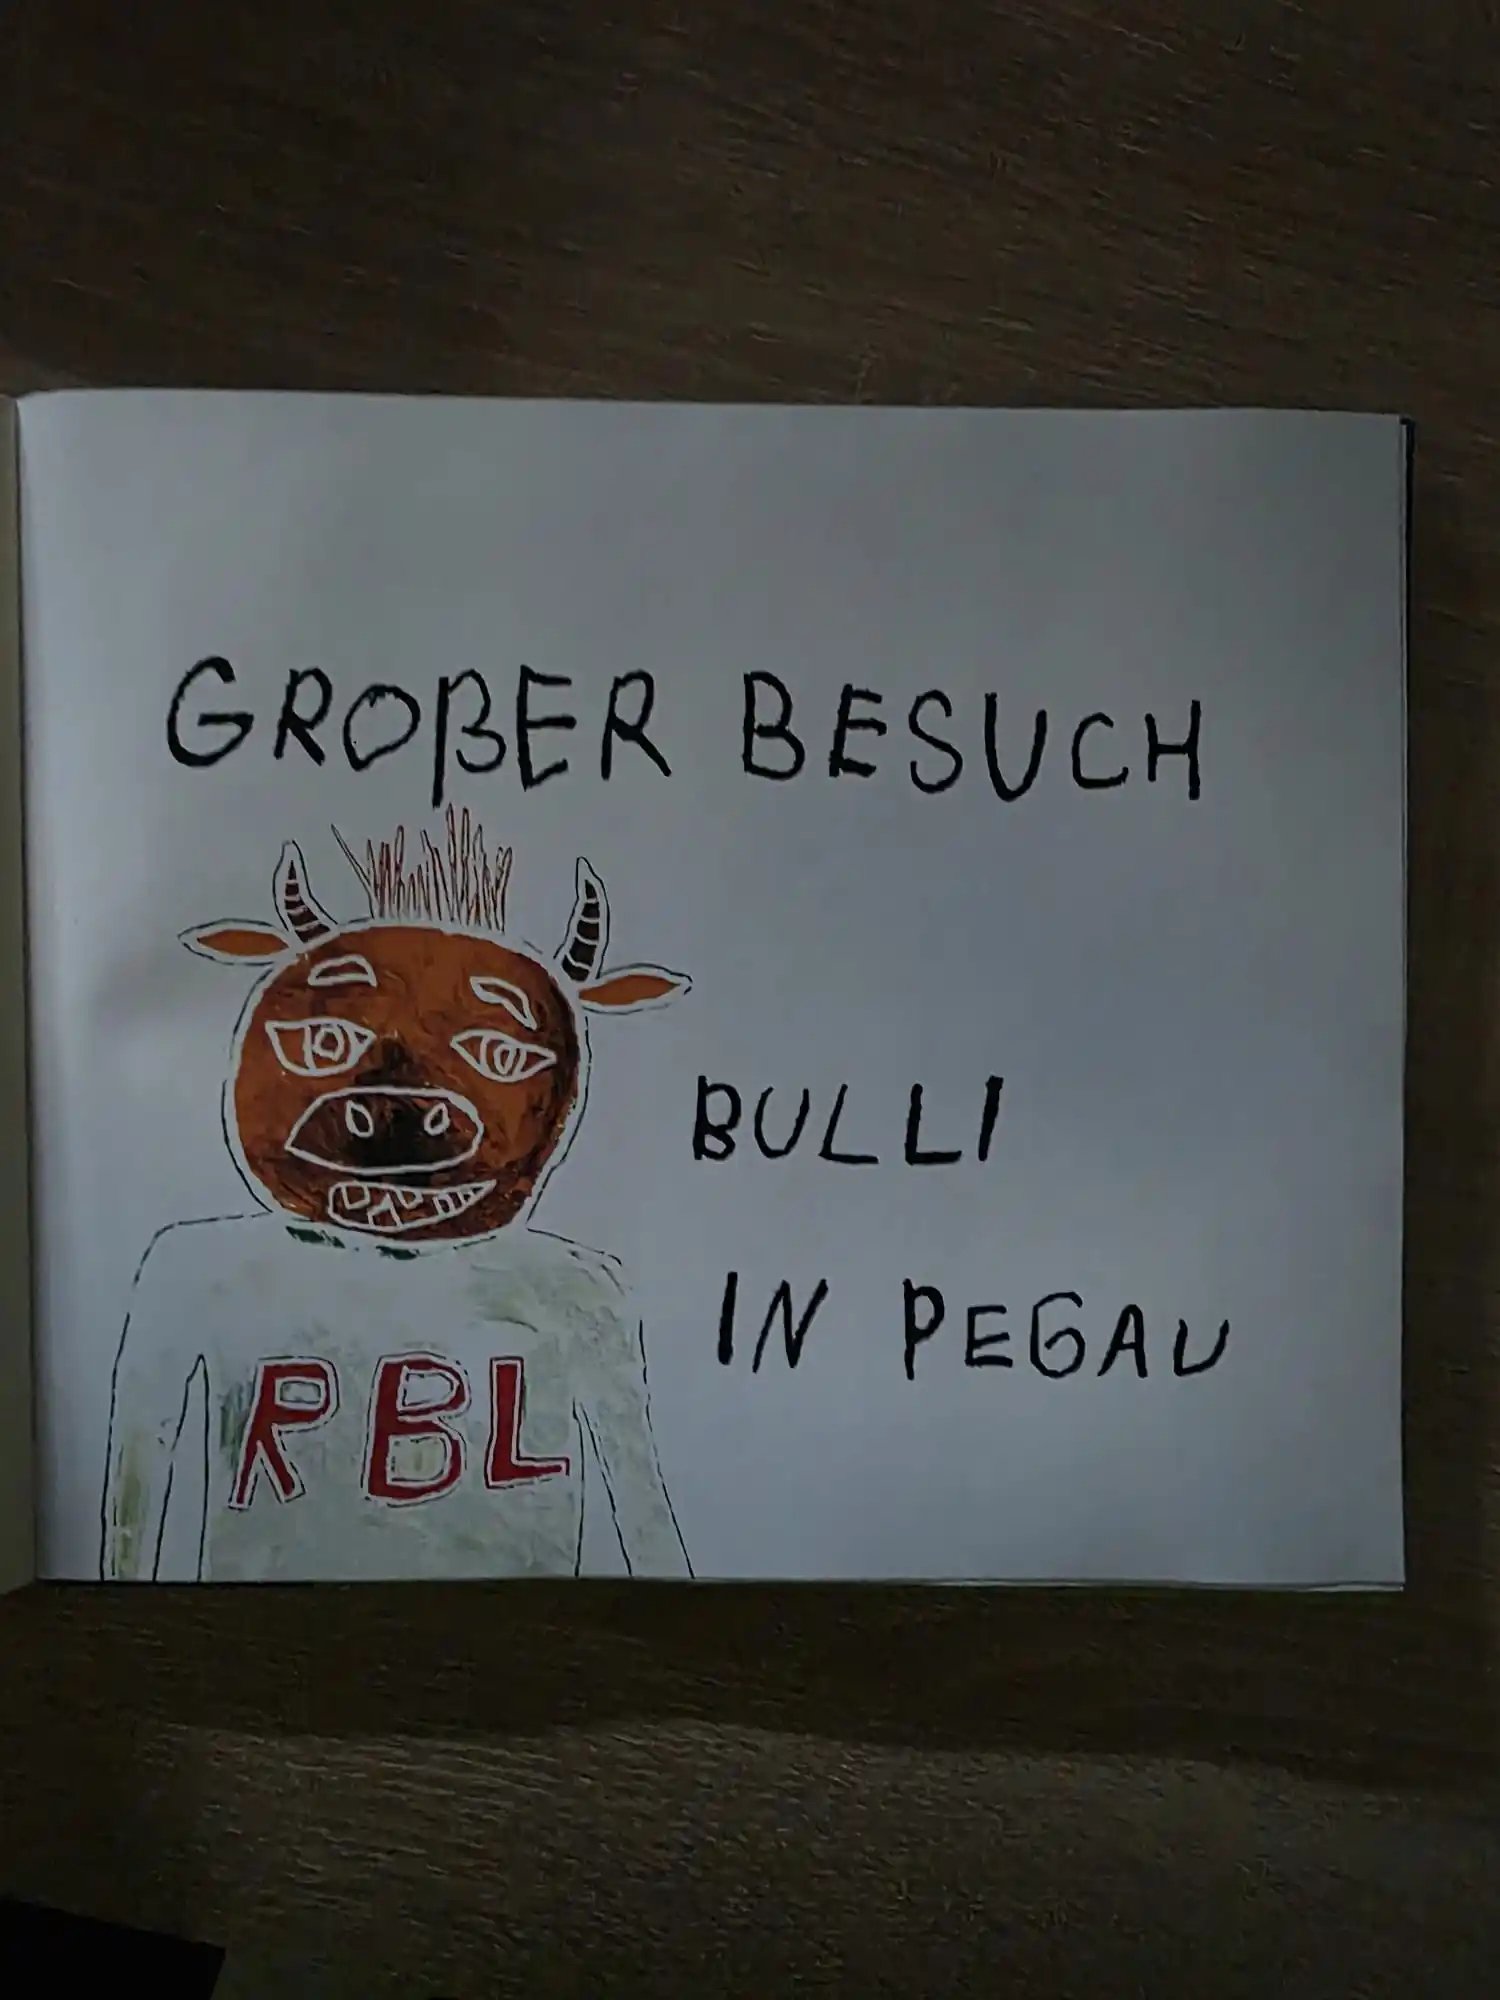 GROßER BESUCH
BULLI
IN PEGAU
RBL